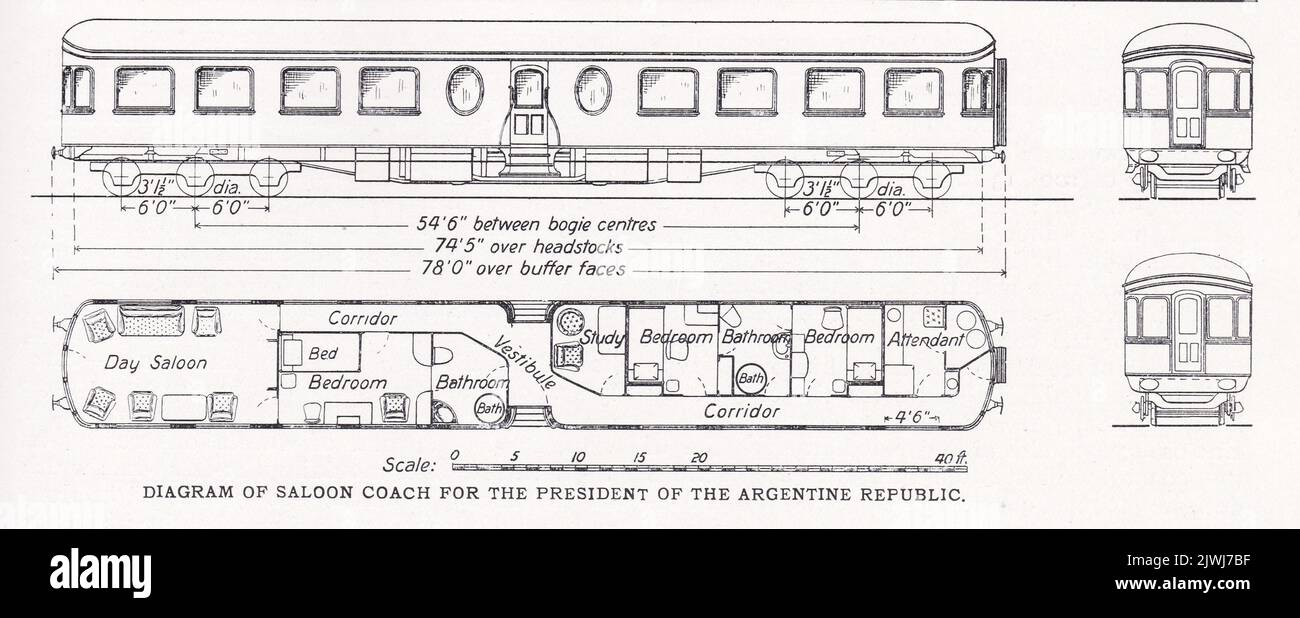 3'1½" dia. 3'1½" dia.
6'0" 6'0" 6'0" 6'0"
54'6" between bogie centres
74'5" over headstocks
78'0" over buffer faces
Corridor
Day Saloon
Bed
Bedroom
Bathroom
Bath
Vestibule
Study
Bedroom
Bathroom
Bath
Bedroom
Attendant
Corridor
4'6"
Scale: 0 5 10 15 20 40 ft.
DIAGRAM OF SALOON COACH FOR THE PRESIDENT OF THE ARGENTINE REPUBLIC.
alamy
Image ID: 2JWJ7BF
www.alamy.com